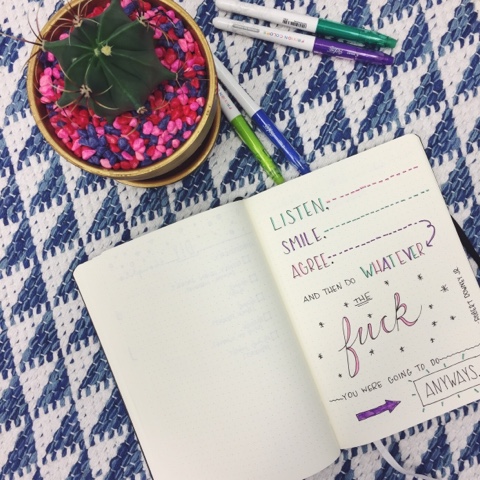 LISTEN.
SMILE.
AGREE.
AND THEN DO WHATEVER
THE
fuck
YOU WERE GOING TO DO
ANYWAYS.
ROBERT DOWNEY JR.